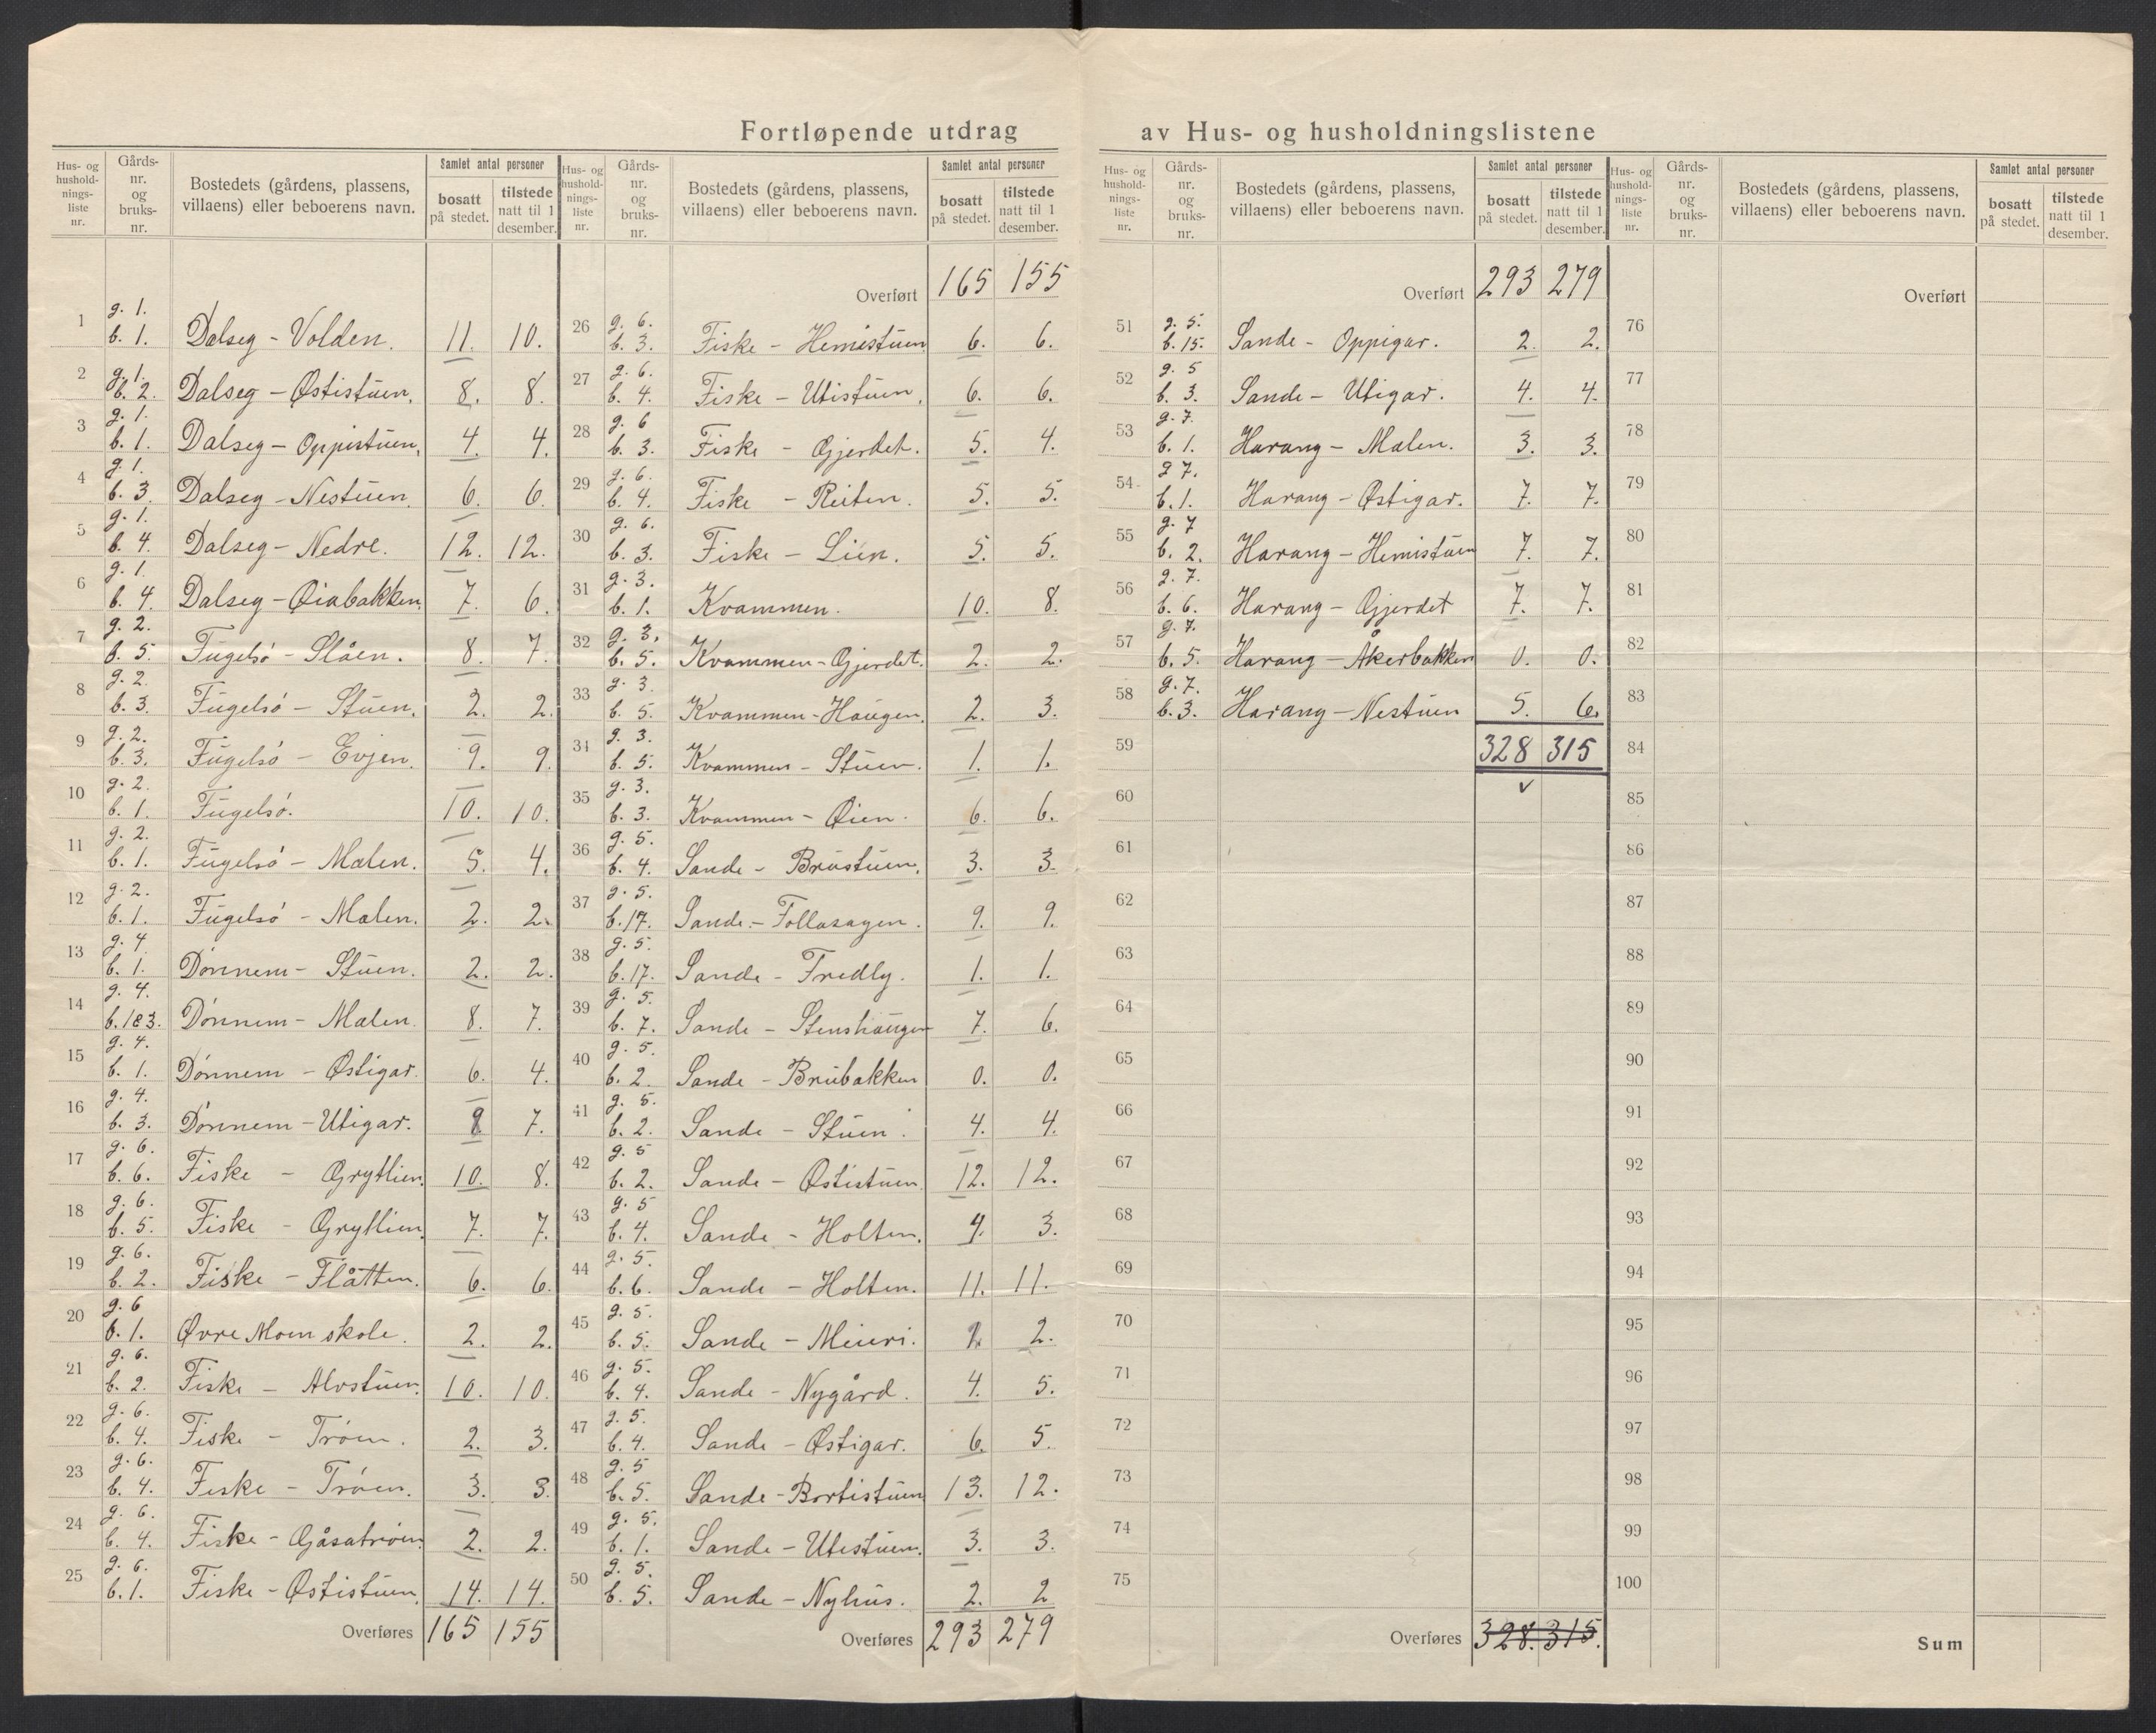 Fortløpende utdrag av Hus- og husholdningslistene
Hus- og hushold-nings-liste nr. | Gårds-nr. og bruks-nr. | Bostedets (gårdens, plassens, villaens) eller beboerens navn. | Samlet antal personer | bosatt på stedet. | tilstede natt til 1 desember.
1 | g. 1. b. 1. | Dalseg - Volden. | 11. | 10.
2 | g. 1. b. 2. | Dalseg - Østistuen. | 8. | 8.
3 | g. 1. b. 1. | Dalseg - Oppistuen. | 4. | 4.
4 | g. 1. b. 3. | Dalseg - Nestuen. | 6. | 6.
5 | g. 1. b. 4. | Dalseg - Nedre. | 12. | 12.
6 | g. 1. b. 4. | Dalseg - Øiabakken. | 7. | 6.
7 | g. 2. b. 5. | Fugelsø - Slåen. | 8. | 7.
8 | g. 2. b. 3. | Fugelsø - Stuen. | 2. | 2.
9 | g. 2. b. 3. | Fugelsø - Evjen. | 9. | 9.
10 | g. 2. b. 1. | Fugelsø. | 10. | 10.
11 | g. 2. b. 1. | Fugelsø - Malen. | 5. | 4.
12 | g. 2. b. 1. | Fugelsø - Malen. | 2. | 2.
13 | g. 4. b. 1. | Dønnem - Stuen. | 2. | 2.
14 | g. 4. b. 1 & 3. | Dønnem - Malen. | 8. | 7.
15 | g. 4. b. 1. | Dønnem - Østigar. | 6. | 4.
16 | g. 4. b. 3. | Dønnem - Utigar. | 8. | 7.
17 | g. 6. b. 6. | Fiske - Grytlien. | 10. | 8.
18 | g. 6. b. 5. | Fiske - Grytlien. | 7. | 7.
19 | g. 6. b. 2. | Fiske - Flåtten. | 6. | 6.
20 | g. 6 b. 1. | Øvre Moen skole. | 2. | 2.
21 | g. 6. b. 2. | Fiske - Alvstuen. | 10. | 10.
22 | g. 6. b. 4. | Fiske - Trøen. | 2. | 3.
23 | g. 6. b. 4. | Fiske - Trøen. | 3. | 3.
24 | g. 6. b. 4. | Fiske - Gåsatrøen. | 2. | 2.
25 | g. 6. b. 1. | Fiske - Østistuen. | 14. | 14.
Overføres | 165 | 155
Hus- og hushold-nings-liste nr. | Gårds-nr. og bruks-nr. | Bostedets (gårdens, plassens, villaens) eller beboerens navn. | Samlet antal personer | bosatt på stedet. | tilstede natt til 1 desember.
Overført | 165 | 155
26 | g. 6. b. 3. | Fiske - Hemistuen | 6. | 6.
27 | g. 6. b. 4. | Fiske - Utistuen. | 6. | 6.
28 | g. 6 b. 3. | Fiske - Gjerdet. | 5. | 4.
29 | g. 6. b. 4. | Fiske - Reiten. | 5. | 5.
30 | g. 6. b. 3. | Fiske - Lien. | 5. | 5.
31 | g. 3. b. 1. | Kvammen. | 10. | 8.
32 | g. 3. b. 5. | Kvammen - Gjerdet. | 2. | 2.
33 | g. 3. b. 5. | Kvammen - Haugen. | 2. | 3.
34 | g. 3. b. 5. | Kvammen - Stuen. | 1. | 1.
35 | g. 3. b. 3. | Kvammen - Øien. | 6. | 6.
36 | g. 5. b. 4. | Sande - Brustuen. | 3. | 3.
37 | g. 5. b. 17. | Sande - Follasagen. | 9. | 9.
38 | g. 5. b. 17. | Sande - Fredly. | 1. | 1.
39 | g. 5. b. 7. | Sande - Stenshaugen | 7. | 6.
40 | g. 5. b. 2. | Sande - Brubakken | 0. | 0.
41 | g. 5. b. 2. | Sande - Stuen. | 4. | 4.
42 | g. 5 b. 2. | Sande - Østistuen. | 12. | 12.
43 | g. 5 b. 4. | Sande - Holten. | 4. | 3.
44 | g. 5. b. 6. | Sande - Holten. | 11. | 11.
45 | g. 5. b. 5. | Sande - Meieri. | 2.
46 | g. 5. b. 4. | Sande - Nygård. | 4. | 5.
47 | g. 5. b. 4. | Sande - Østigar. | 6. | 5.
48 | g. 5 b. 5. | Sande - Bortistuen | 13. | 12.
49 | g. 5. b. 1. | Sande - Utistuen. | 3. | 3.
50 | g. 5. b. 5. | Sande - Nyhus. | 2. | 2
Overføres | 293 | 279
Hus- og hushold-nings-liste nr. | Gårds-nr. og bruks-nr. | Bostedets (gårdens, plassens, villaens) eller beboerens navn. | Samlet antal personer | bosatt på stedet. | tilstede natt til 1 desember.
Overført | 293 | 279
51 | g. 5. b. 15. | Sande - Oppigar. | 2. | 2.
52 | g. 5 b. 3. | Sande - Utigar. | 4. | 4.
53 | g. 7. b. 1. | Harang - Malen. | 3. | 3.
54 | g 7. b. 1. | Harang - Østigar. | 7. | 7.
55 | g. 7 b. 2. | Harang - Hemistuen | 7. | 7.
56 | g. 7. b. 6. | Harang - Gjerdet | 7. | 7.
57 | g. 7. b. 5. | Harang - Åkerbakken | 0. | 0.
58 | g. 7. b. 3. | Harang - Nestuen | 5. | 6.
59 | 328 | 315
60
61
62
63
64
65
66
67
68
69
70
71
72
73
74
75
Overføres | 328. | 315.
Hus- og hushold-nings-liste nr. | Gårds-nr. og bruks-nr. | Bostedets (gårdens, plassens, villaens) eller beboerens navn. | Samlet antal personer | bosatt på stedet. | tilstede natt til 1 desember.
Overført
76
77
78
79
80
81
82
83
84
85
86
87
88
89
90
91
92
93
94
95
96
97
98
99
100
Sum